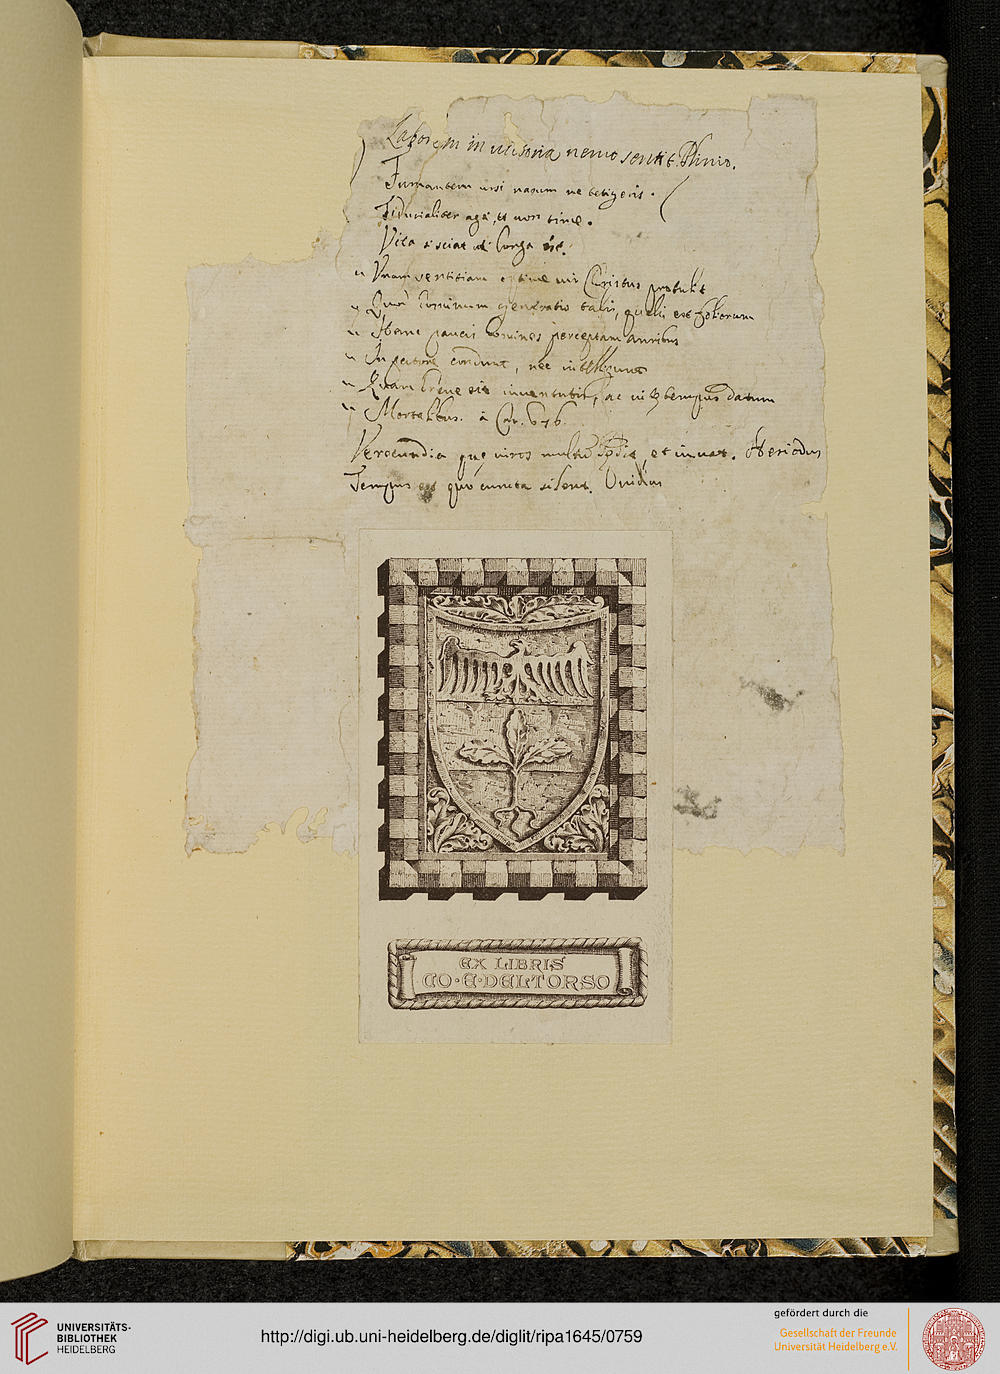 Laborem in victoria nemo sentit. Plinio.
Fumantem ursi nasum ne tetigeris.
Fiducialiter age, et non time.
Vita si sciat uti longa est.
Unam sententiam optime vir Clarissimus protulit
Qualis hominum generatio talis, qualis est foliorum
Hanc pauci homines perceptam auribus
In pectore condunt, nec intelligunt
Quam breve sit iuventutis, ac vitae tempus datum
Mortalibus. à Car. 676.
Verecundia quę viros multum lędit, et iuvat. Hesiodus
Tempus erat quo cuncta silent. Ovidius
EX LIBRIS
CO·E·DELTORSO
UNIVERSITÄTS-
BIBLIOTHEK
HEIDELBERG
http://digi.ub.uni-heidelberg.de/diglit/ripa1645/0759
gefördert durch die
Gesellschaft der Freunde
Universität Heidelberg e.V.